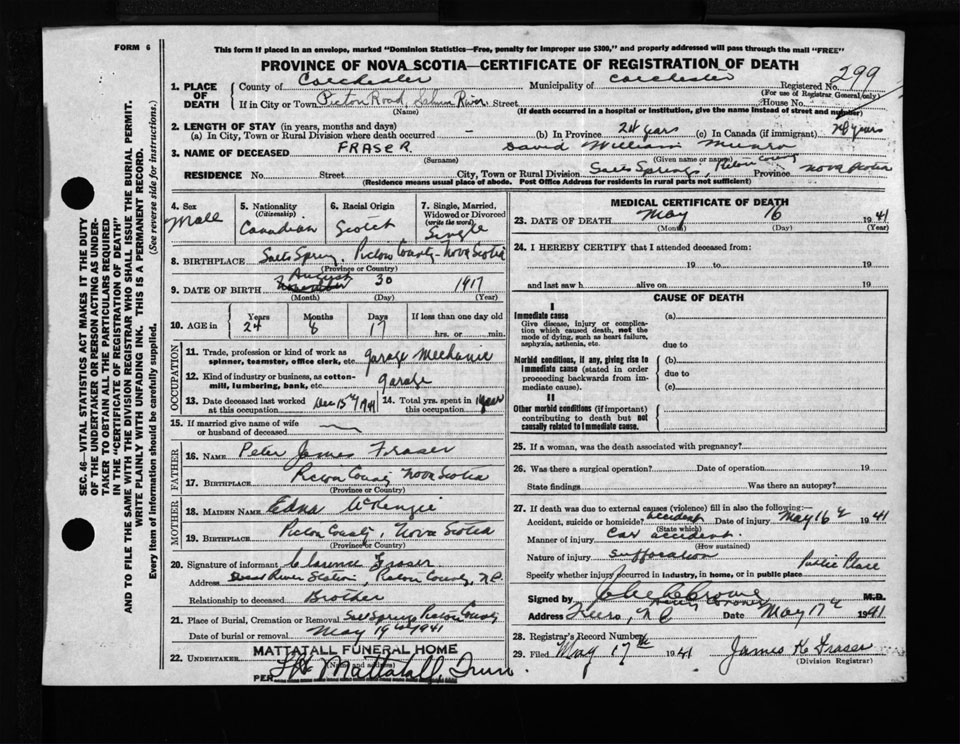 FORM 6
This form if placed in an envelope, marked "Dominion Statistics—Free, penalty for improper use $300," and properly addressed will pass through the mail "FREE"
PROVINCE OF NOVA SCOTIA—CERTIFICATE OF REGISTRATION OF DEATH
SEC. 46—VITAL STATISTICS ACT MAKES IT THE DUTY
OF THE UNDERTAKER OR PERSON ACTING AS UNDER-
TAKER TO OBTAIN ALL THE PARTICULARS REQUIRED
IN THE "CERTIFICATE OF REGISTRATION OF DEATH"
AND TO FILE THE SAME WITH THE DIVISION REGISTRAR WHO SHALL ISSUE THE BURIAL PERMIT.
WRITE PLAINLY WITH UNFADING INK. THIS IS A PERMANENT RECORD.
Every item of Information should be carefully supplied. (See reverse side for instructions.)
1. PLACE OF DEATH
County of Colchester Municipality of Colchester Registered No. 299
(For use of Registrar General only)
If in City or Town Picton Road, Salmon River. Street House No.
(Name) (If death occurred in a hospital or institution, give the name instead of street and number)
2. LENGTH OF STAY (in years, months and days)
(a) In City, Town or Rural Division where death occurred - (b) In Province 24 years (c) In Canada (if immigrant) years
3. NAME OF DECEASED FRASER David William Munro
(Surname) (Given name or names)
RESIDENCE No. Street City, Town or Rural Division Salt Springs, Picton County Province Nova Scotia
(Residence means usual place of abode. Post Office Address for residents in rural parts not sufficient)
4. Sex Male
5. Nationality (Citizenship) Canadian
6. Racial Origin Scotch
7. Single, Married, Widowed or Divorced (write the word) Single
8. BIRTHPLACE Salt Spring, Picton County - Nova Scotia
(Province or Country)
9. DATE OF BIRTH August 30 1917
(Month) (Day) (Year)
10. AGE in Years 24 Months 8 Days 17 If less than one day old hrs. or min.
OCCUPATION
11. Trade, profession or kind of work as spinner, teamster, office clerk, etc. garage Mechanic
12. Kind of industry or business, as cotton-mill, lumbering, bank, etc. garage
13. Date deceased last worked at this occupation Dec 15th
14. Total yrs. spent in this occupation 1 year
15. If married give name of wife or husband of deceased
FATHER
16. NAME Peter James Fraser
17. BIRTHPLACE Picton County Nova Scotia
(Province or Country)
MOTHER
18. MAIDEN NAME Edna McKenzie
19. BIRTHPLACE Picton County, Nova Scotia
(Province or Country)
20. Signature of informant Clarence Fraser
Address River Station, Picton County, N.S.
Relationship to deceased Brother
21. Place of Burial, Cremation or Removal Salt Springs Picton County
Date of burial or removal May 19th 1941
22. UNDERTAKER MATTATALL FUNERAL HOME
(Name and address)
PER Mattatall, Truro
MEDICAL CERTIFICATE OF DEATH
23. DATE OF DEATH May 16 1941
(Month) (Day) (Year)
24. I HEREBY CERTIFY that I attended deceased from:
19 to 19
and last saw h alive on 19
CAUSE OF DEATH
I
Immediate cause (a)
Give disease, injury or complication which caused death, not the mode of dying, such as heart failure, asphyxia, asthenia, etc.
due to
Morbid conditions, if any, giving rise to immediate cause (stated in order proceeding backwards from immediate cause).
(b)
due to
(c)
II
Other morbid conditions (if important) contributing to death but not causally related to immediate cause.
25. If a woman, was the death associated with pregnancy?
26. Was there a surgical operation? Date of operation 19
State findings Was there an autopsy?
27. If death was due to external causes (violence) fill in also the following:—
Accident, suicide or homicide? Accident Date of injury May 16th 1941
(State which)
Manner of injury Car accident.
(How sustained)
Nature of injury suffocation
Specify whether injury occurred in industry, in home, or in public place Public Place
Signed by M.D.
Coroner
Address Truro, N.S Date May 17th 1941
28. Registrar's Record Number
29. Filed May 17th 1941 James H Fraser
(Division Registrar)